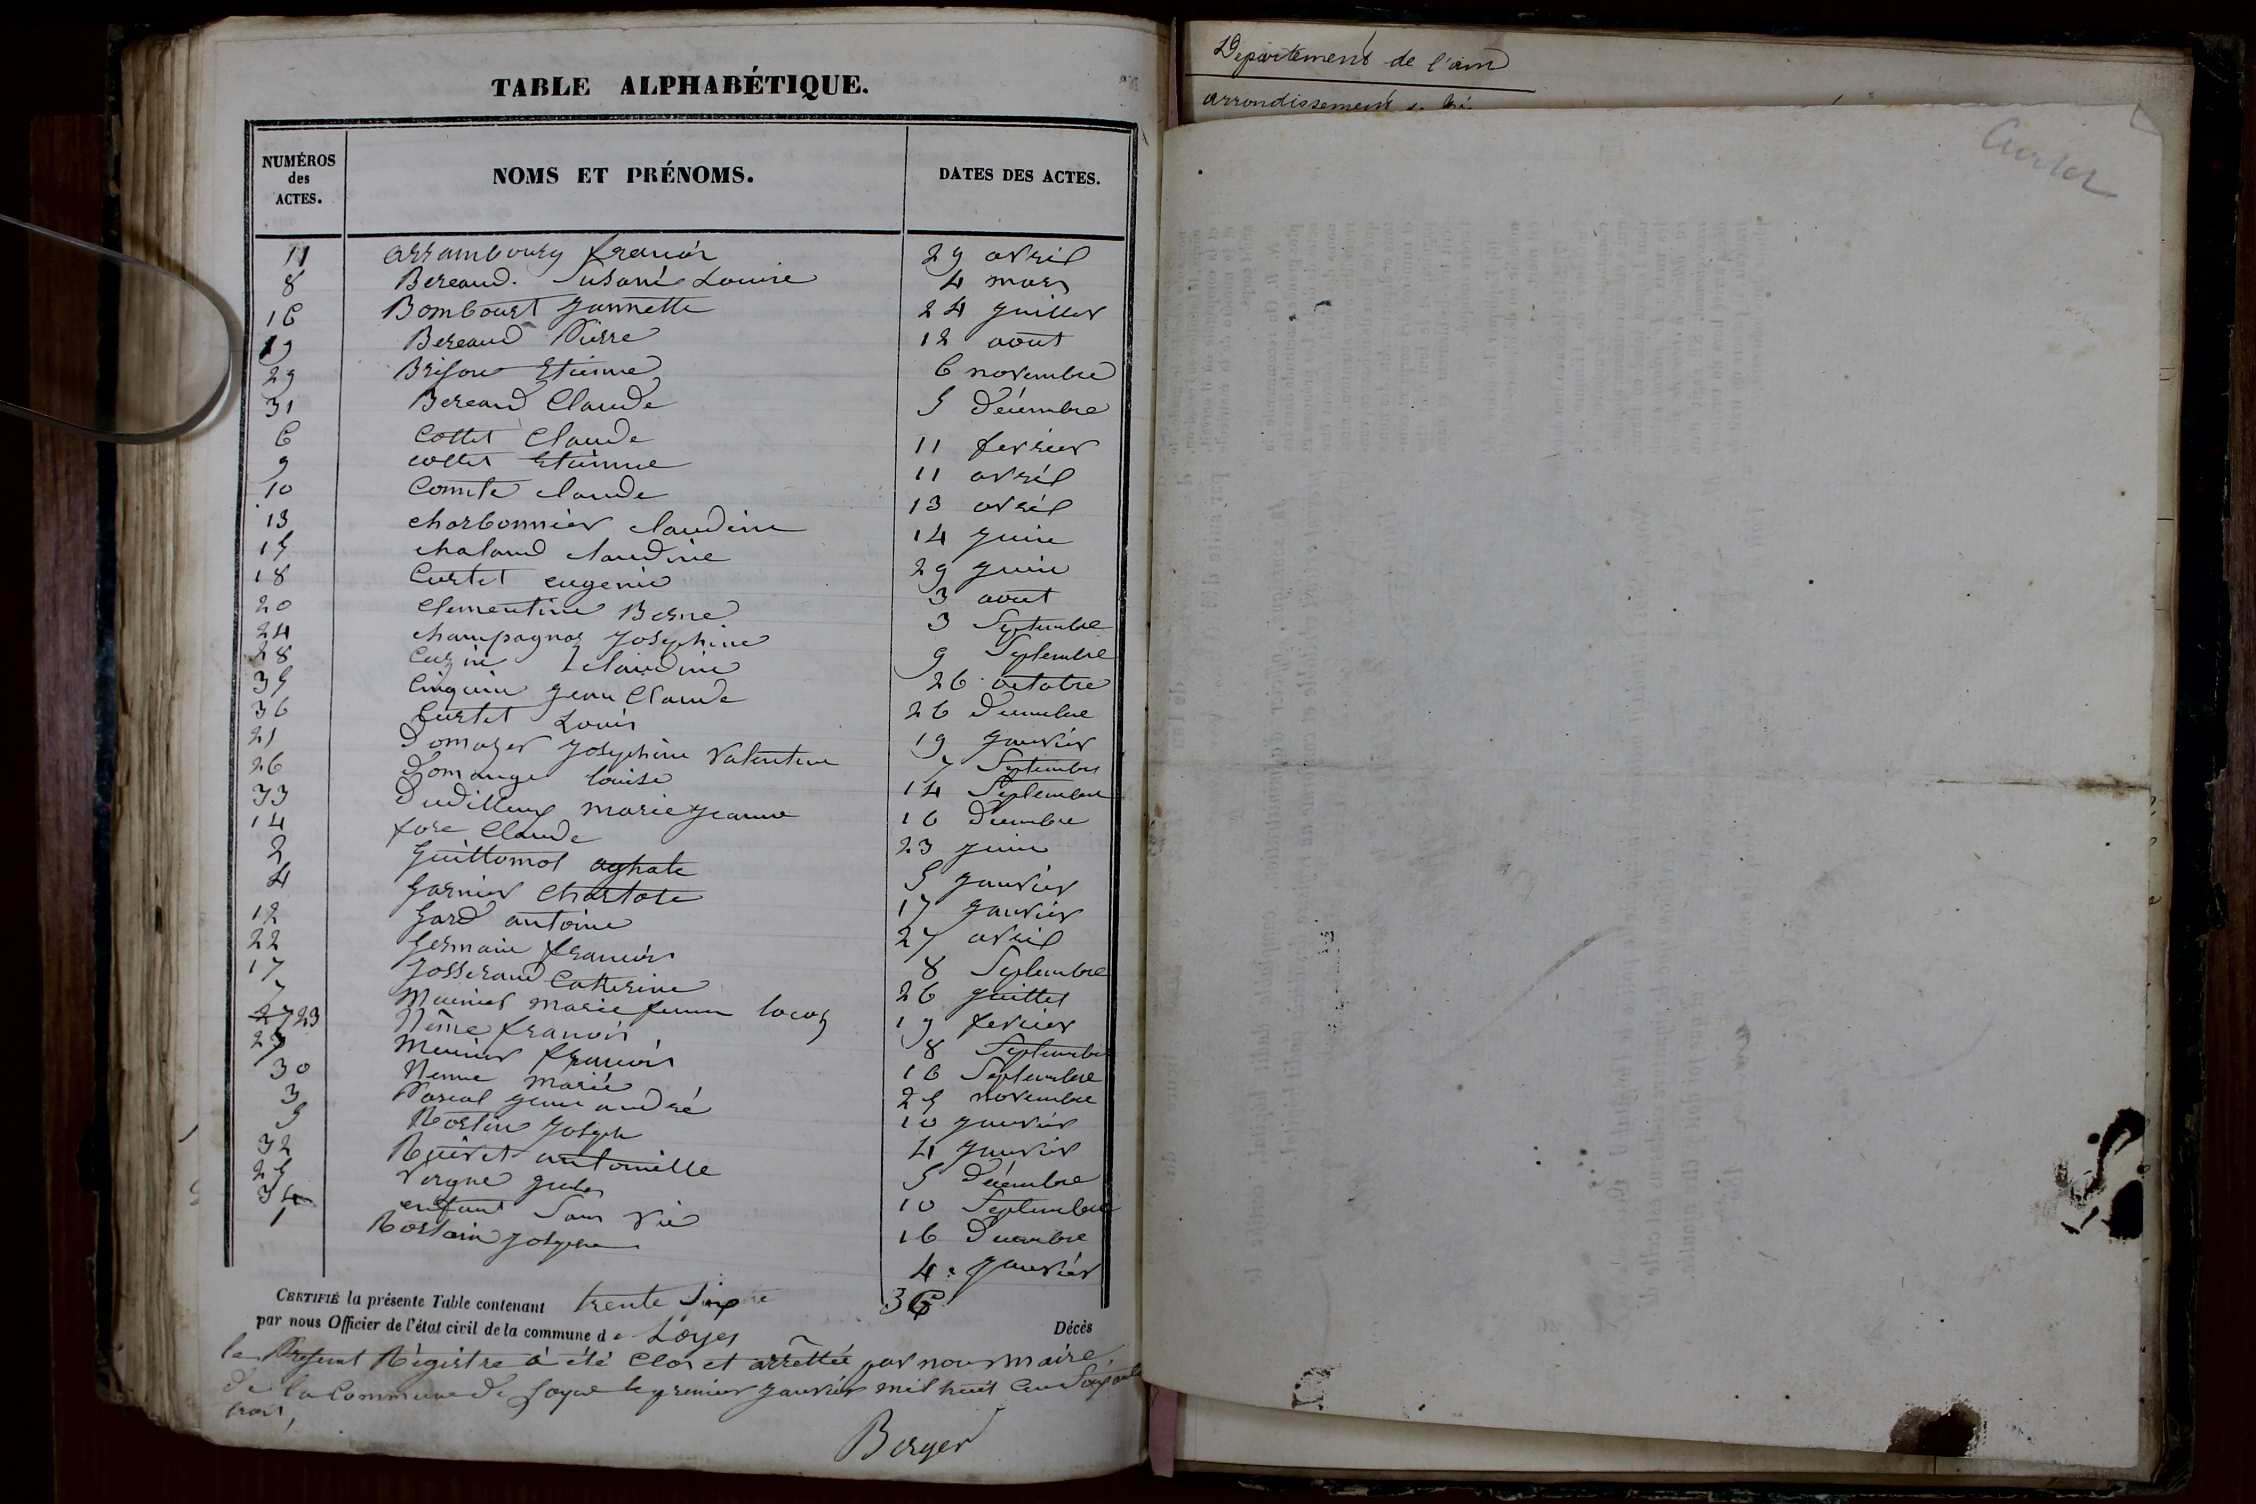 TABLE ALPHABÉTIQUE.
NUMÉROS des ACTES. NOMS ET PRÉNOMS. DATES DES ACTES.
11 arrambourg francois 29 avril
8 Bereaud. Susane Louise 4 mars
16 Bombourt Jannette 24 juillet
19 Bereaud Pierre 12 aout
29 Brison Etienne 6 novembre
31 Bereaud Claude 5 Décembre
6 Collet Claude 11 fevrier
9 collet Etienne 11 avril
10 Comte claude 13 avril
13 charbonnier claudine 14 juin
15 chaland claudine 29 juin
18 Curtet eugenie 3 aout
20 Clementine Berne 3 Septembre
24 champagnor Josephine 9 Septembre
28 claudine 26 octobre
35 Cinquin jean Claude 26 Decembre
36 Curtet Louis 19 janvier
21 Josephine Valentine 7 Septembre
26 Domange louise 14 Septembre
33 marie jeanne 16 Decembre
14 fore Claude 23 juin
2 Guillomot aghate 5 janvier
4 Garnier Charlote 17 janvier
12 Gard antoine 27 avril
22 Germain francois 8 Septembre
17 Josserand Catherine 26 juillet
7 Meunier marie femme 19 fevrier
27 23 Nême francois 8 Septembre
27 Meunier francois 16 Septembre
30 Neme marie 25 novembre
3 Pascal jean andré 10 janvier
5 Rostin Joseph 4 janvier
32 antoinette 5 Décembre
25 Vorgne jules 10 Septembre
34 enfant Sans vie 16 Decembre
1 Rostain joseph 4 janvier
CERTIFIÉ la présente Table contenant trente Six 36
par nous Officier de l'état civil de la commune de Loyes Décès
le Présent Régistre à été Clos et arrettée par nous maire
de la Commune de Loyes le premier janvier mil huit Cent Soixante
trois,
Berger
Departement de l'ain
arrondissement
Curtet